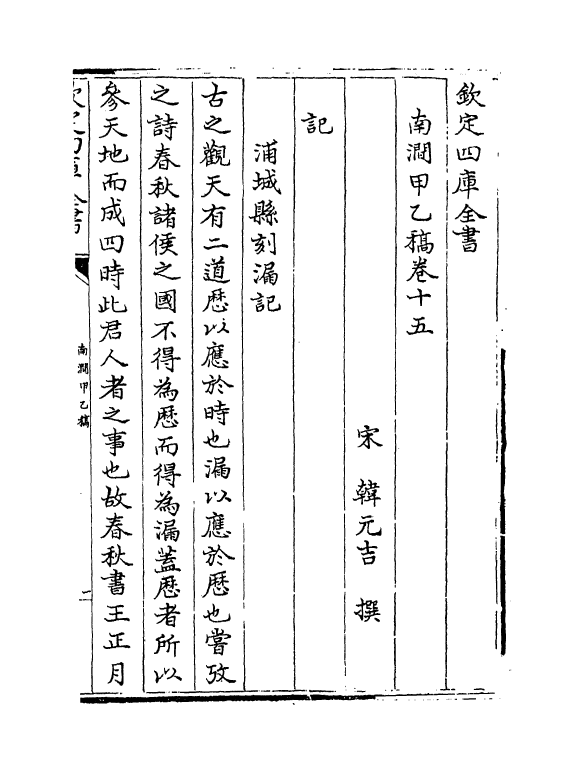 欽定四庫全書
南澗甲乙稿卷十五
宋 韓元吉 撰
記
浦城縣刻漏記
古之觀天有二道厯以應於時也漏以應於厯也嘗攷
之詩春秋諸侯之國不得為厯而得為漏蓋厯者所以
參天地而成四時此君人者之事也故春秋書王正月
欽定四庫全書
南澗甲乙稿